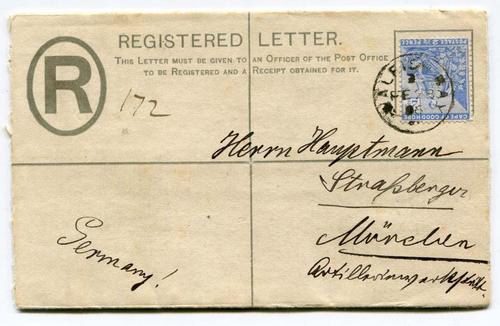 REGISTERED LETTER.
THIS LETTER MUST BE GIVEN TO AN OFFICER OF THE POST OFFICE
TO BE REGISTERED AND A RECEIPT OBTAINED FOR IT.
R
172
POSTAGE 2½ PENCE
CAPE OF GOOD HOPE
Herrn Hauptmann
Straßberger
München
Artilleriewerkstätte
Germany!